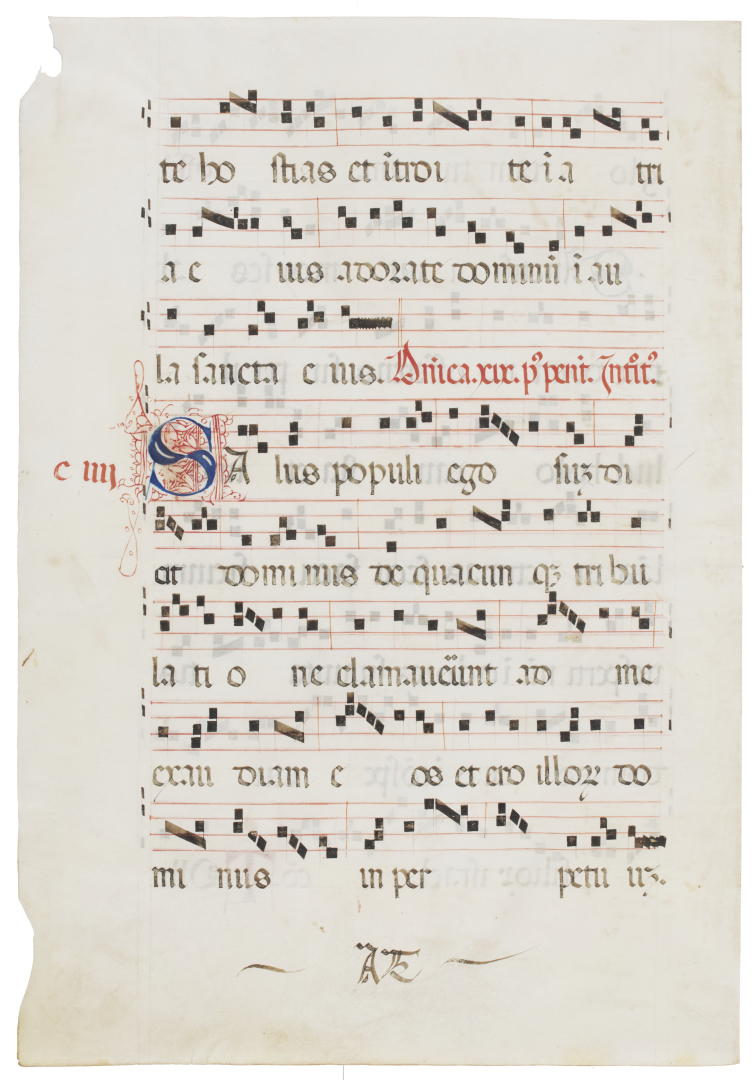 te ho stias et ītroi te ī a tri
a e ius adorate dominū ī au
la sancta e ius. Dn̄ica.xix. pꝰ pent̄. Int̄oitꝰ.
c iiij SA lus populi ego suꝫ di
cit dominus de quacun qꝫ tribu
la ti o ne clamaueūnt ad me
exau diam e os et ero illoꝝ do
mi nus in per petu uꝫ.